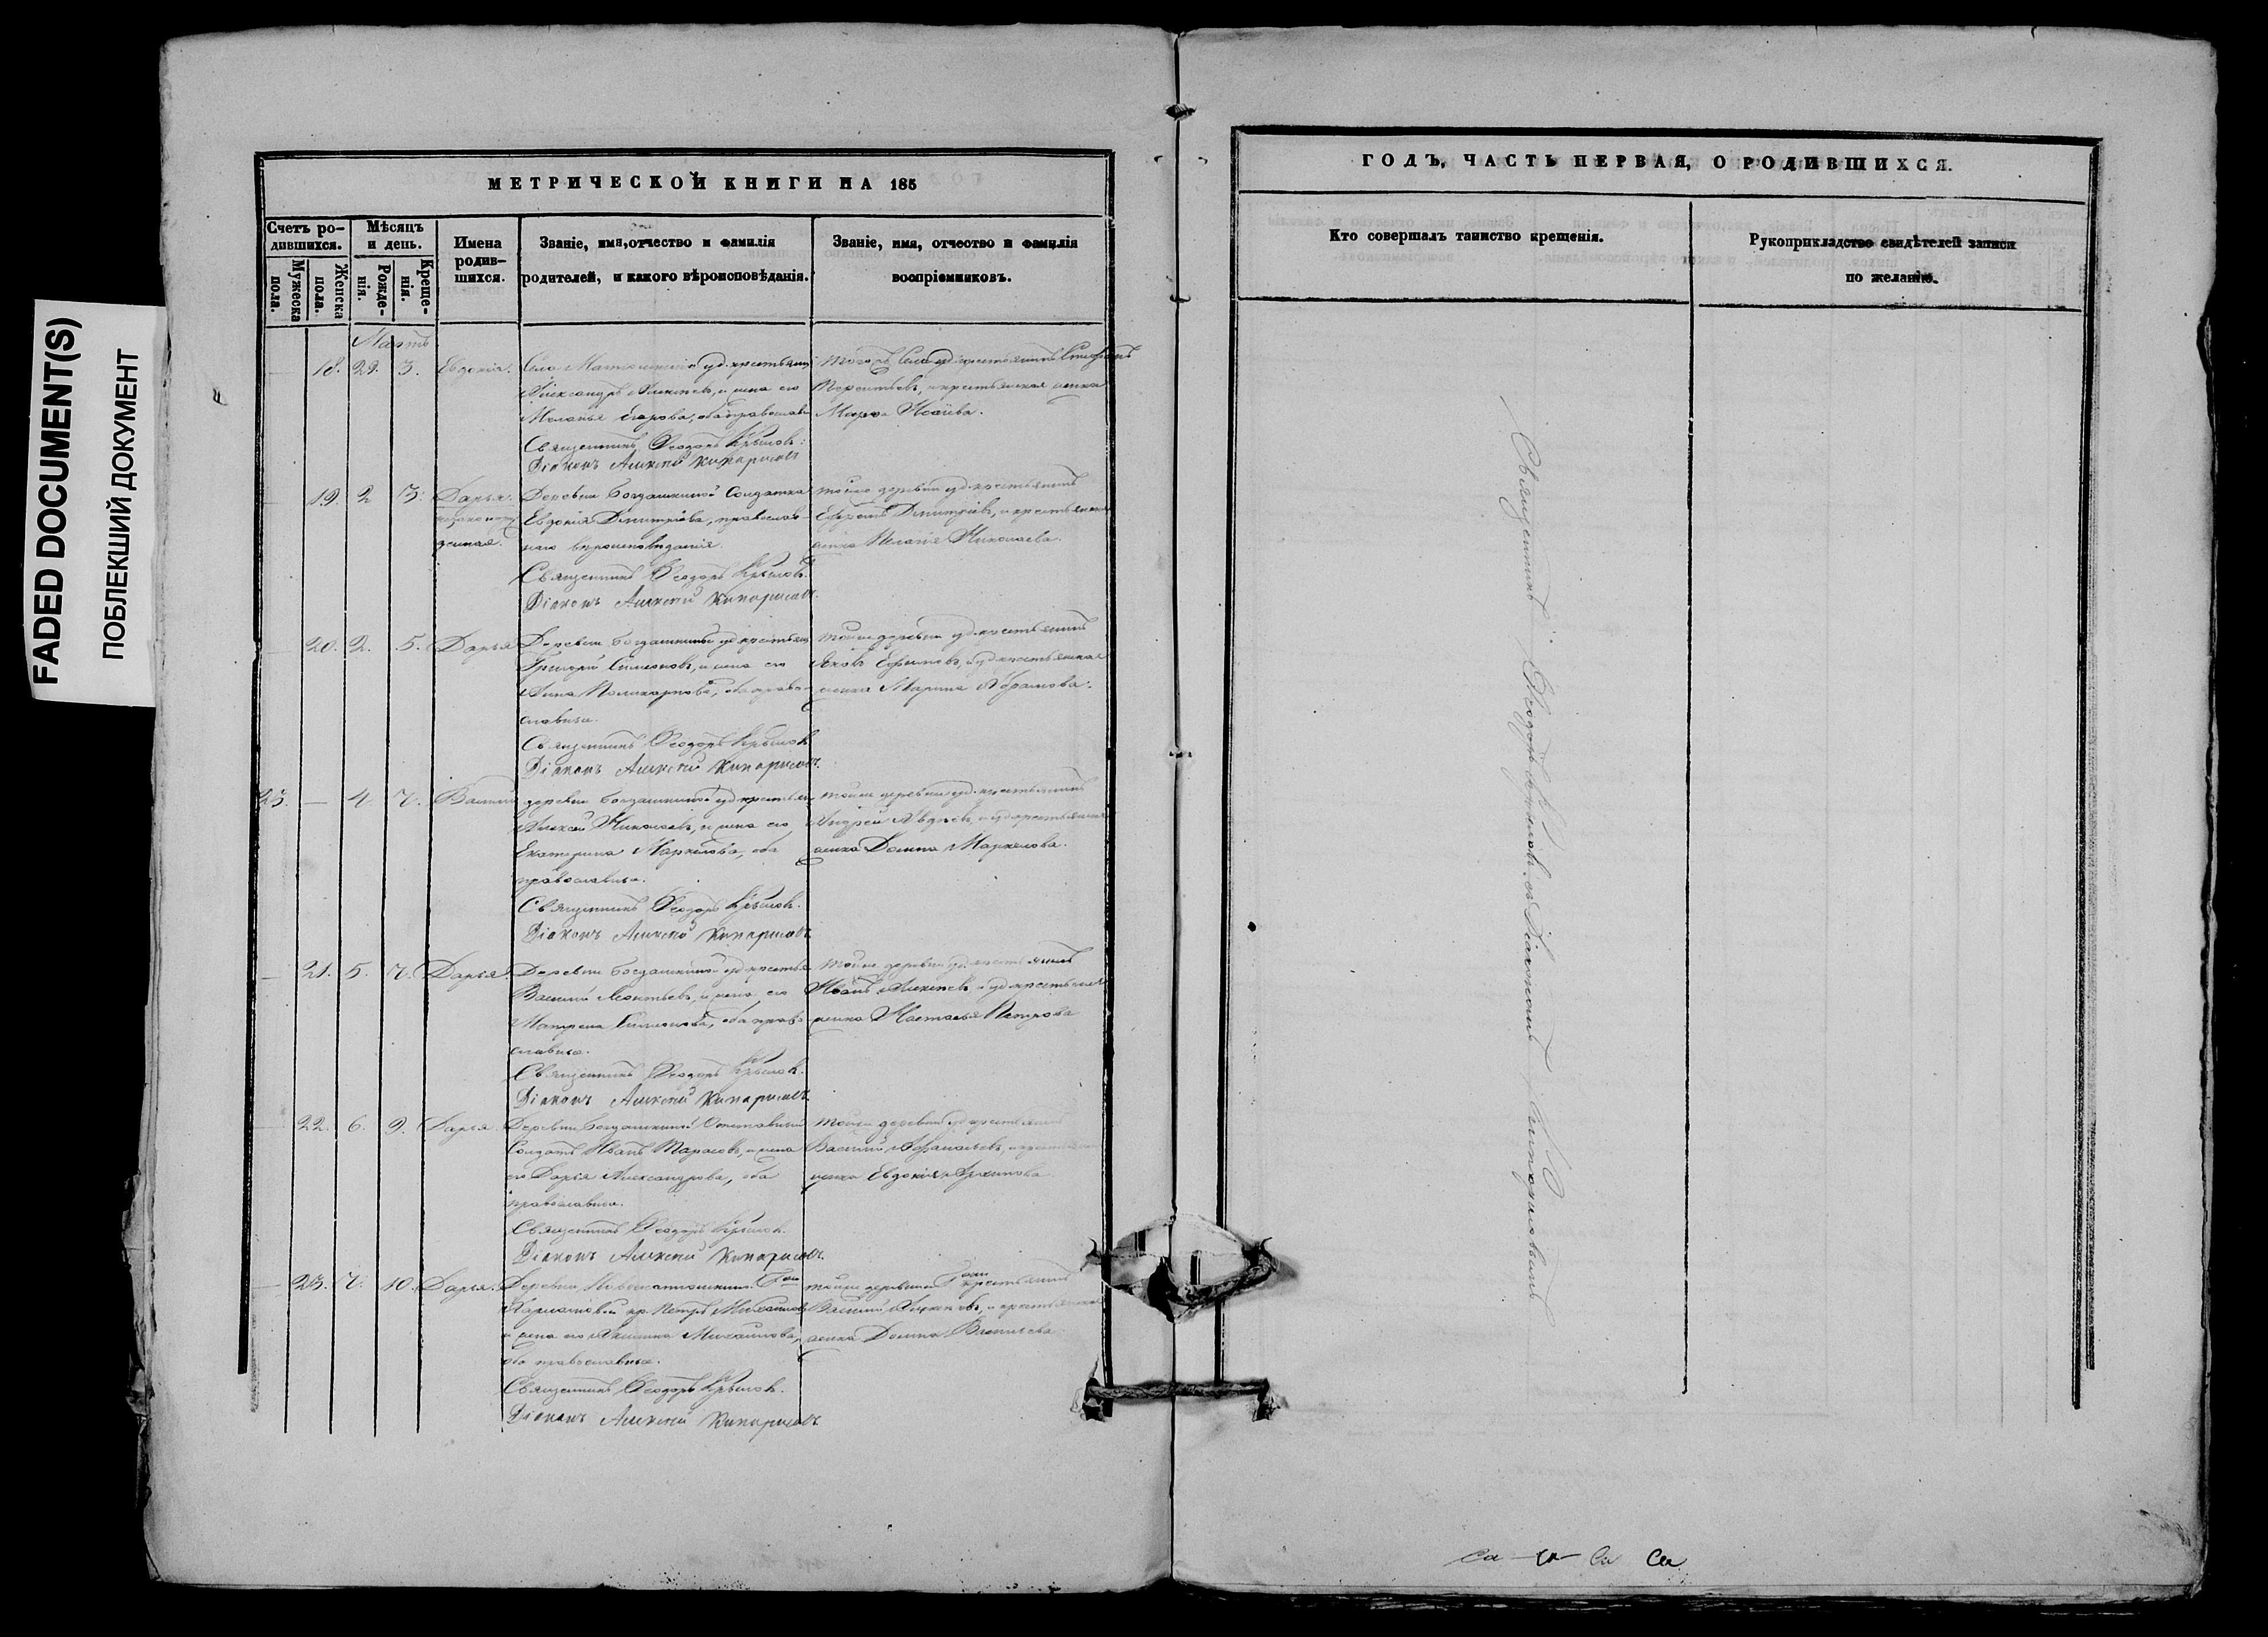 FADED DOCUMENT(S)
ПОБЛЕКШИЙ ДОКУМЕНТ
МЕТРИЧЕСКОЙ КНИГИ НА 185
Счетъ ро-
дившихся.
Мужеска
пола.
Женска
пола.
Мѣсяцъ
и день.
Рожде-
нія.
Креще-
нія.
Имена
родив-
шихся.
Званіе, имя, отчество и фамилія
родителей, и какого вѣроисповѣданія.
Званіе, имя, отчество и фамилія
воспріемниковъ.
Мартъ
18. 3. Евдокія. Села уд. крестьянинъ
Александръ Алексѣевъ, и жена его
Меланья Егорова, оба православ
Священникъ Ѳеодоръ Крыловъ.
Діаконъ Алексѣй Кипарисовъ
того села уд. крестьянинъ
Терентьевъ, и крестьянская женка
Марѳа Исаіева.
19. 2 3. Дарья. Деревни Богдашкиной Солдатка
Евдокія Димитріева, православ
наго вѣроисповѣданія.
Священникъ Ѳеодоръ Крыловъ.
Діаконъ Алексѣй Кипарисовъ.
тойже деревни уд. крестьянинъ
Ефремъ Димитріевъ, и крестьянская
женка Пелагія Николаева.
20. 2. 5. Дарья Деревни Богдашкиной уд. крестьян
Григорій Симеоновъ, и жена его
Анна Поликарпова, оба право-
славные.
Священникъ Ѳеодоръ Крыловъ
Діаконъ Алексѣй Кипарисовъ.
тойже деревни уд. крестьянинъ
Яковъ Ефимовъ, и уд. крестьянская
женка Марина Абрамова.
23. — 4. 7. Василій деревни Богдашкиной уд. крестьян
Алексѣй Николаевъ, и жена его
Екатерина Маркелова, оба
православные.
Священникъ Ѳеодоръ Крыловъ.
Діаконъ Алексѣй Кипарисовъ
тойже деревни уд. крестьянинъ
Андрей Авдѣевъ, и уд. крестьянская
женка Домна Маркелова.
21. 5. 7. Дарья. Деревни Богдашкиной уд. крестья
Василій Леонтьевъ, и жена его
Матрена Симеонова, оба право
славные.
Священникъ Ѳеодоръ Крыловъ.
Діаконъ Алексѣй Кипарисовъ
тойже деревни уд. крестьянинъ
Иванъ Алексѣевъ и уд. крестьянская
женка Настасья Петрова
22. 6. 9. Дарья. Деревни Богдашкиной Отставной
Солдатъ Иванъ Тарасовъ, и жена
его Дарія Александрова, оба
православные.
Священникъ Ѳеодоръ Крыловъ.
Діаконъ Алексѣй Кипарисовъ.
тойже деревни уд. крестьянинъ
Василій Аѳанасьевъ, и крестьян
женка Евдокія Архипова
23. 7. 10. Дарья. Деревни
кр. Петръ Михайловъ
и жена его Михаилова,
оба православные.
Священникъ Ѳеодоръ Крыловъ.
Діаконъ Алексѣй Кипарисовъ
тойже деревни крестьянинъ
Василій и крестьянская
женка Домна Васильева
ГОДЪ, ЧАСТЬ ПЕРВАЯ, О РОДИВШИХСЯ.
Кто совершалъ таинство крещенія.
Рукоприкладство свидѣтелей записи
по желанію.
Священникъ Ѳеодоръ Крыловъ съ Діакономъ Кипарисовымъ